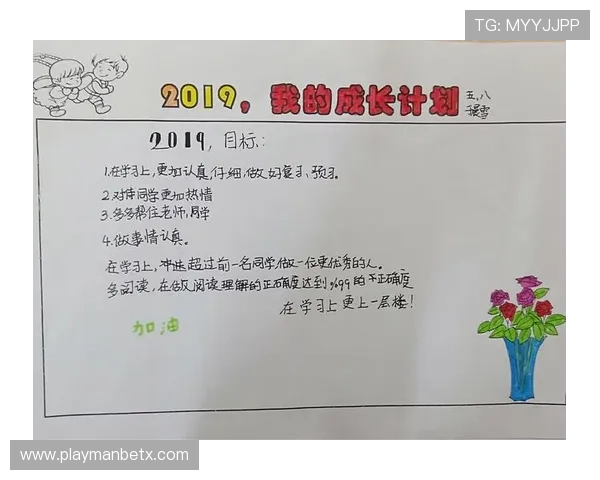 TG: MYYJJPP
2019，我的成长计划
五、八
2019，目标：
1.在学习上，更加认真，仔细，做好复习、预习。
2.对待同学更加热情
3.多多帮住老师，同学
4.做事情认真。
在学习上，冲进超过前一名同学，做一位更优秀的人。
多阅读，在做阅读理解的正确度达到%99的不正确度
在学习上更上一层楼！
加油
www.playmanbetx.com